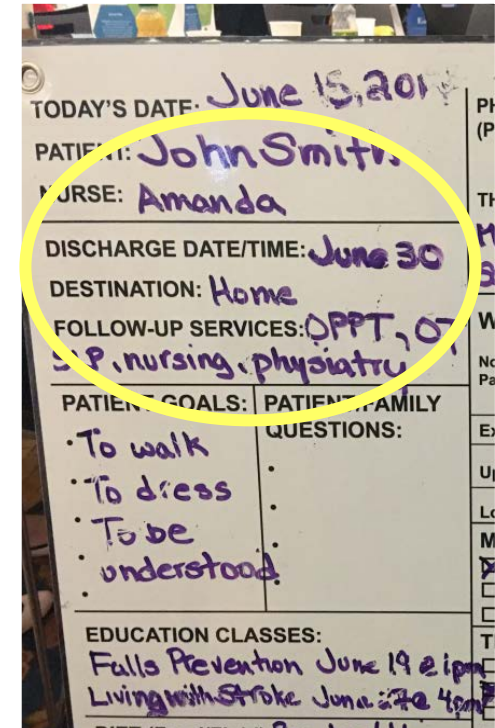 TODAY'S DATE: June 15, 201
PATIENT: John Smith
NURSE: Amanda
DISCHARGE DATE/TIME: June 30
DESTINATION: Home
FOLLOW-UP SERVICES: OPPT, OT
SLP, nursing, physiatry
PATIENT GOALS:
· To walk
· To dress
· To be
· understood
PATIENT/FAMILY
QUESTIONS:
EDUCATION CLASSES:
Falls Prevention June 19 @ 1pm
Living with Stroke June @ 4pm